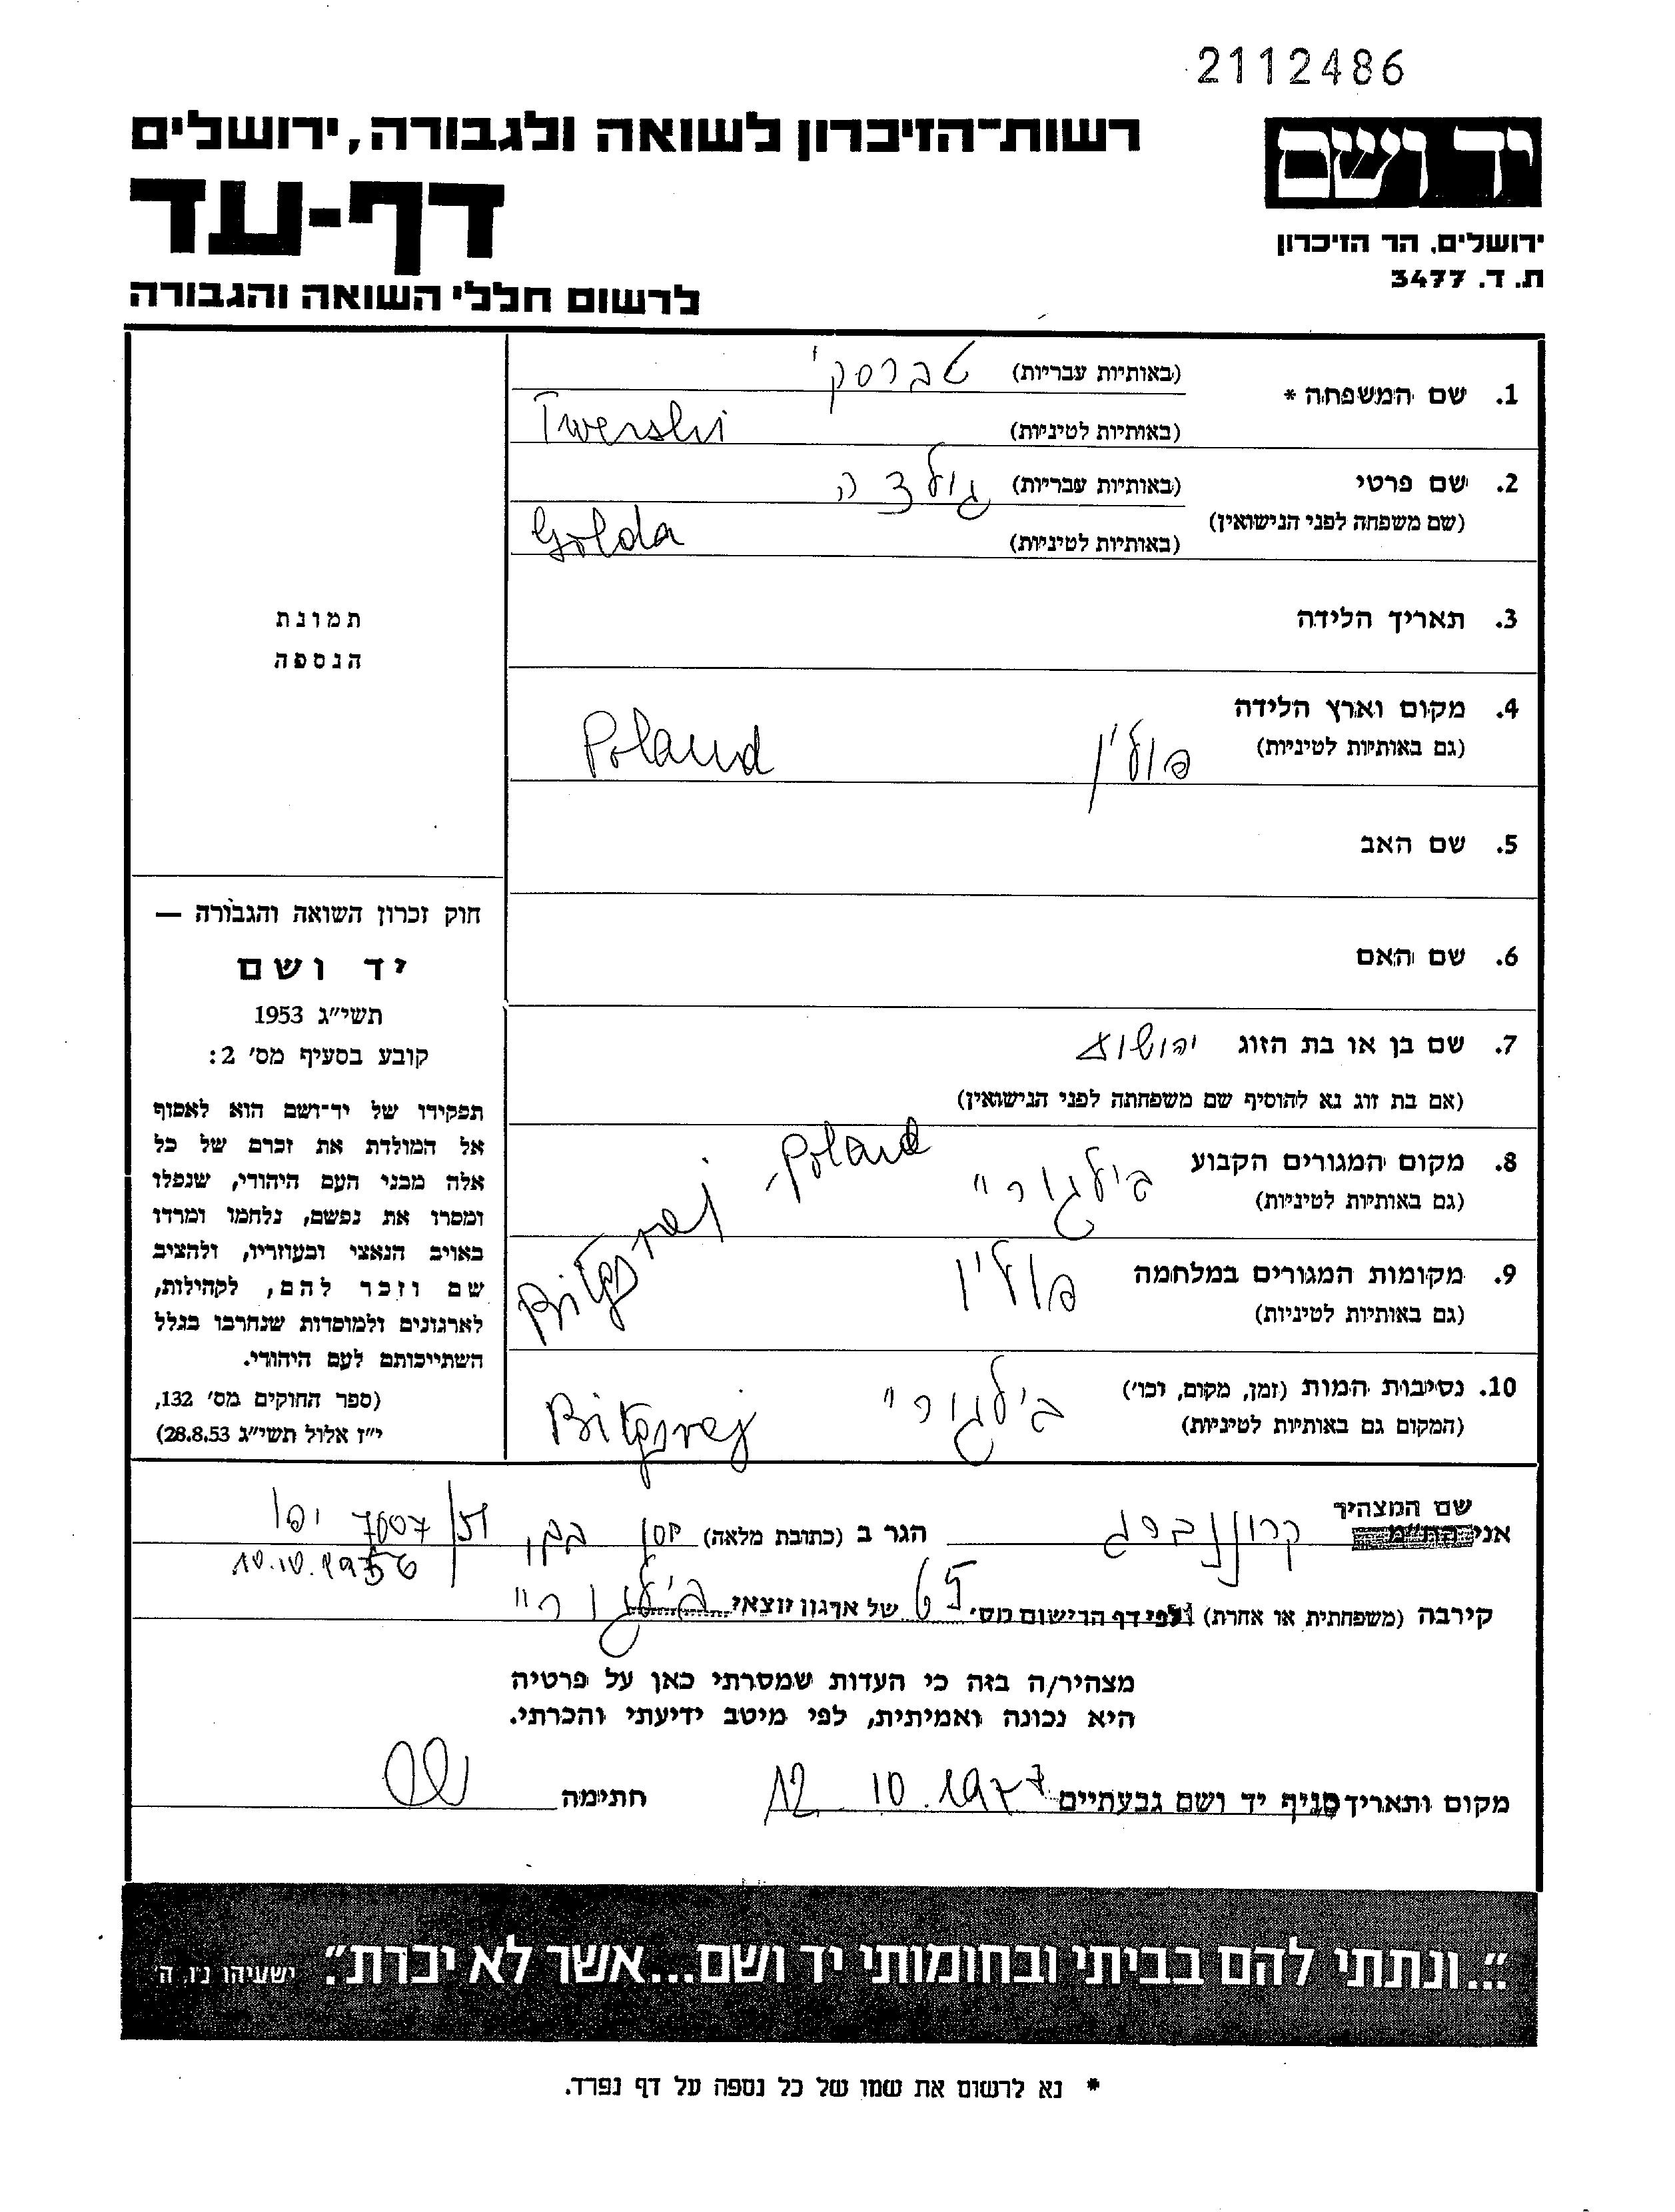 2112486
יד ושם
ירושלים, הר הזיכרון
ת. ד. 3477
רשות־הזיכרון לשואה ולגבורה, ירושלים
דף-עד
לרשום חללי השואה והגבורה
1. שם המשפחה *
(באותיות עבריות) טברסקי
(באותיות לטיניות) Twerski
2. שם פרטי
(שם משפחה לפני הנישואין)
(באותיות עבריות) גולדה
(באותיות לטיניות) Golda
3. תאריך הלידה
4. מקום וארץ הלידה
(גם באותיות לטיניות)
פולין Poland
5. שם האב
6. שם האם
7. שם בן או בת הזוג יהושוע
(אם בת זוג נא להוסיף שם משפחתה לפני הנישואין)
8. מקום המגורים הקבוע
(גם באותיות לטיניות)
בילגוריי Biłgoraj - Poland
9. מקומות המגורים במלחמה
(גם באותיות לטיניות)
פולין
10. נסיבות המות (זמן, מקום, וכו')
(המקום גם באותיות לטיניות)
בילגוריי Biłgoraj
תמונת
הנספה
חוק זכרון השואה והגבורה —
יד ושם
תשי״ג 1953
קובע בסעיף מס׳ 2:
תפקידו של יד־ושם הוא לאסוף
אל המולדת את זכרם של כל
אלה מבני העם היהודי, שנפלו
ומסרו את נפשם, נלחמו ומרדו
באויב הנאצי ובעוזריו, ולהציב
שם וזכר להם, לקהילות,
לארגונים ולמוסדות שנחרבו בגלל
השתייכותם לעם היהודי.
(ספר החוקים מס׳ 132,
י״ז אלול תשי״ג 28.8.53)
שם המצהיר
אני קרוננברג הגר ב (כתובת מלאה) יפו
10.10.1956
קירבה (משפחתית או אחרת) לפי דף הרישום מס׳ של ארגון יוצאי בילגוריי
מצהיר/ה בזה כי העדות שמסרתי כאן על פרטיה
היא נכונה ואמיתית, לפי מיטב ידיעתי והכרתי.
מקום ותאריך סניף יד ושם גבעתיים 12.10.1977 חתימה
״...ונתתי להם בביתי ובחומותי יד ושם...אשר לא יכרת״. ישעיהו נ״ו, ה׳
* נא לרשום את שמו של כל נספה על דף נפרד.